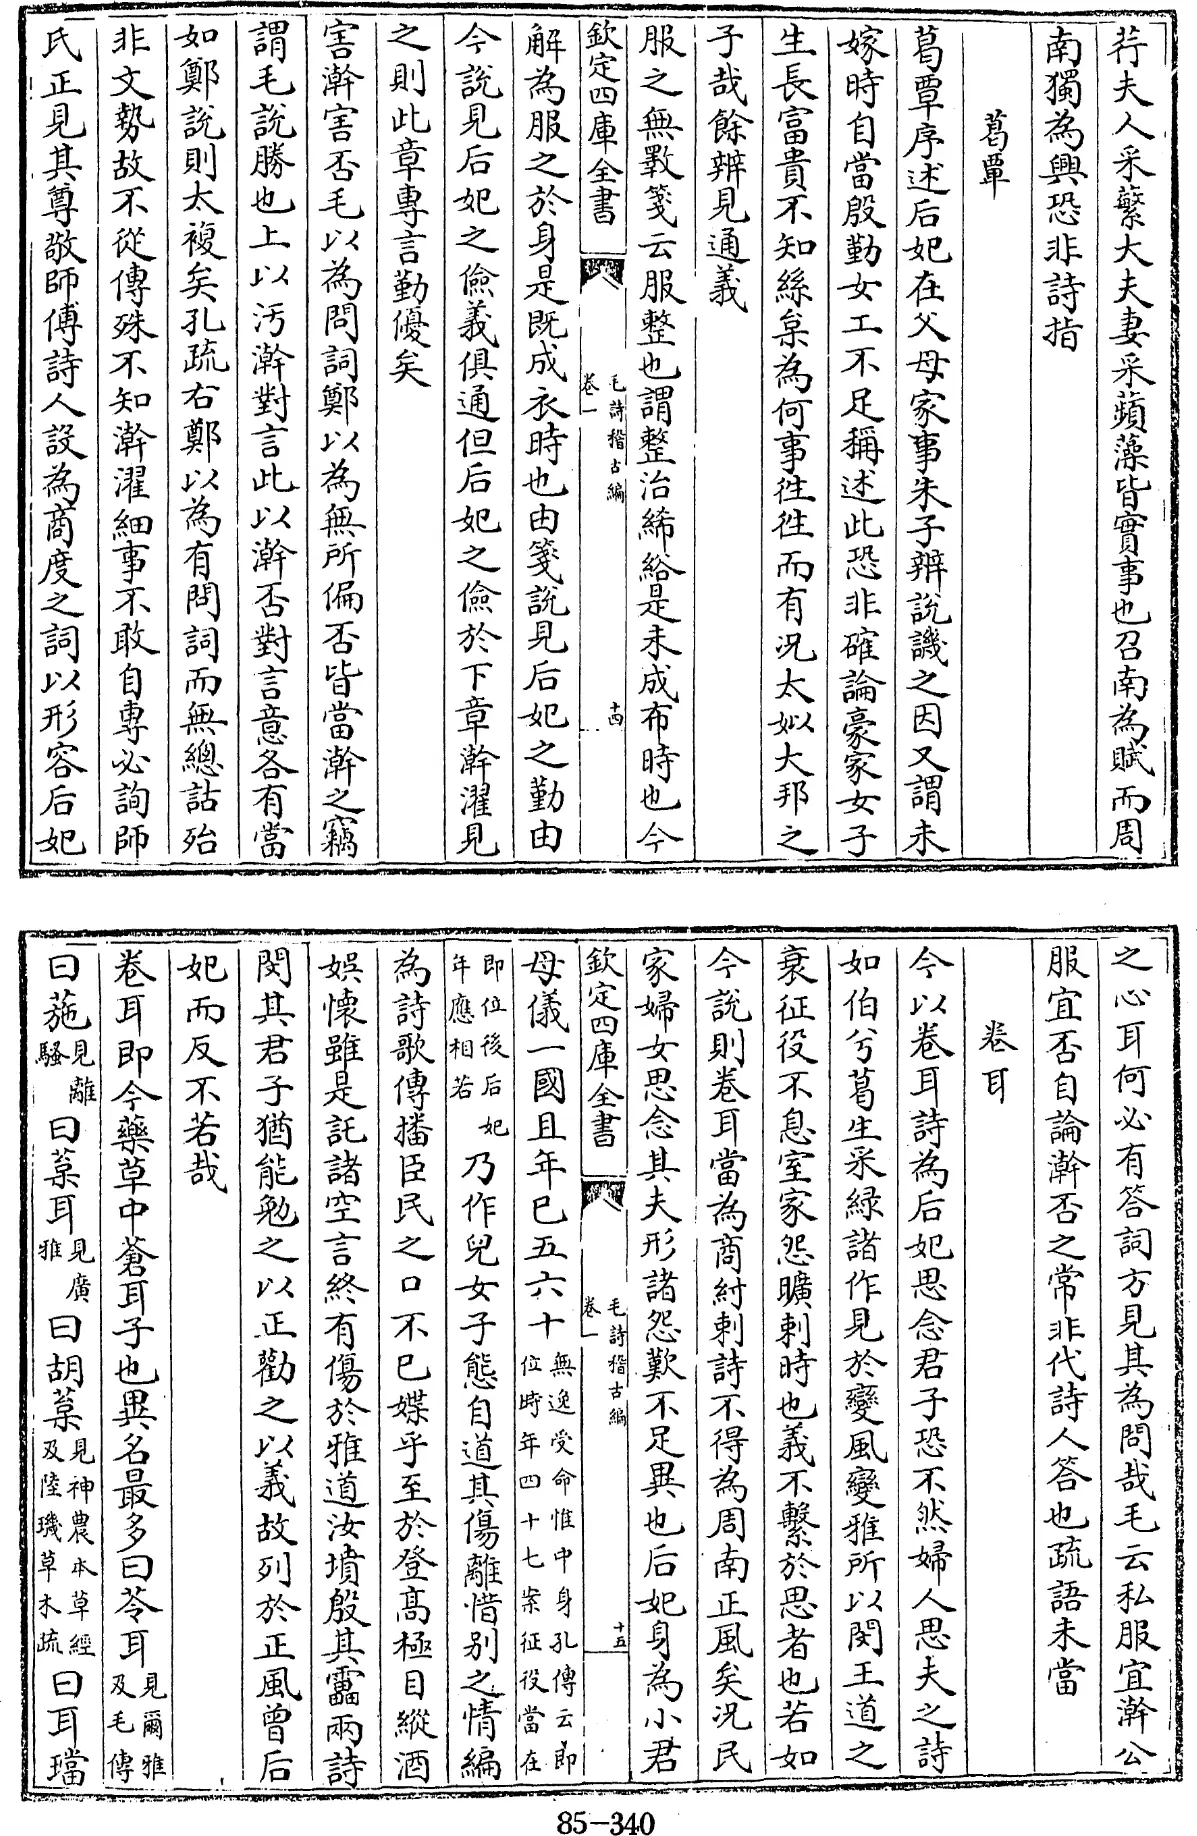 荇夫人采蘩大夫妻采蘋藻皆實事也召南為賦而周
南獨為興恐非詩指
葛覃
葛覃序述后妃在父母家事朱子辨說譏之因又謂未
嫁時自當殷勤女工不足稱述此恐非確論豪家女子
生長富貴不知絲枲為何事徃徃而有况太姒大邦之
子哉餘辨見通義
服之無斁箋云服整也謂整治絺綌是未成布時也今
欽定四庫全書
毛詩稽古編
卷一
十四
解為服之於身是既成衣時也由箋說見后妃之勤由
今說見后妃之儉義俱通但后妃之儉於下章澣濯見
之則此章專言勤優矣
害澣害否毛以為問詞鄭以為無所偏否皆當澣之竊
謂毛說勝也上以汚澣對言此以澣否對言意各有當
如鄭說則太複矣孔疏右鄭以為有問詞而無總詁殆
非文勢故不從傳殊不知澣濯細事不敢自專必詢師
氏正見其尊敬師傅詩人設為商度之詞以形容后妃
之心耳何必有答詞方見其為問哉毛云私服宜澣公
服宜否自論澣否之常非代詩人答也疏語未當
卷耳
今以卷耳詩為后妃思念君子恐不然婦人思夫之詩
如伯兮葛生采緑諸作見於變風變雅所以閔王道之
衰征役不息室家怨曠刺時也義不繫於思者也若如
今說則卷耳當為商紂刺詩不得為周南正風矣况民
家婦女思念其夫形諸怨歎不足異也后妃身為小君
欽定四庫全書
毛詩稽古編
卷一
十五
母儀一國且年巳五六十無逸受命惟中身孔傳云即位時年四十七案征役當在
即位後后妃年應相若乃作兒女子態自道其傷離惜别之情編
為詩歌傳播臣民之口不巳媟乎至於登高極目縱酒
娛懷雖是託諸空言終有傷於雅道汝墳殷其靁兩詩
閔其君子猶能勉之以正勸之以義故列於正風曾后
妃而反不若哉
卷耳即今藥草中蒼耳子也異名最多曰苓耳見爾雅及毛傳
曰葹見離騷曰菒耳見廣雅曰胡菒見神農本草經及陸璣草木疏曰耳璫
85-340